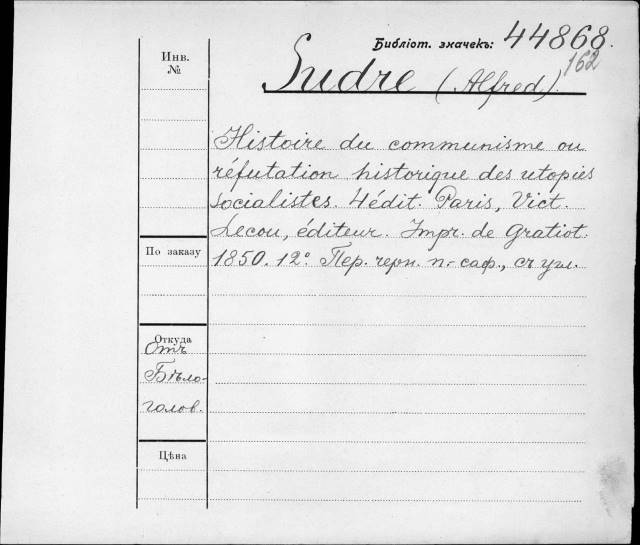 Библіот. значекъ: 44868.
162
Инв.
№
Sudre (Alfred).
Histoire du communisme ou
réfutation historique des utopies
socialistes. 4 édit. Paris, Vict.
Lecou, éditeur. Impr. de Gratiot.
1850. 12° Пер. черн. п.-саф., съ угл.
По заказу
Откуда
Отъ
Бѣло-
голов.
Цѣна